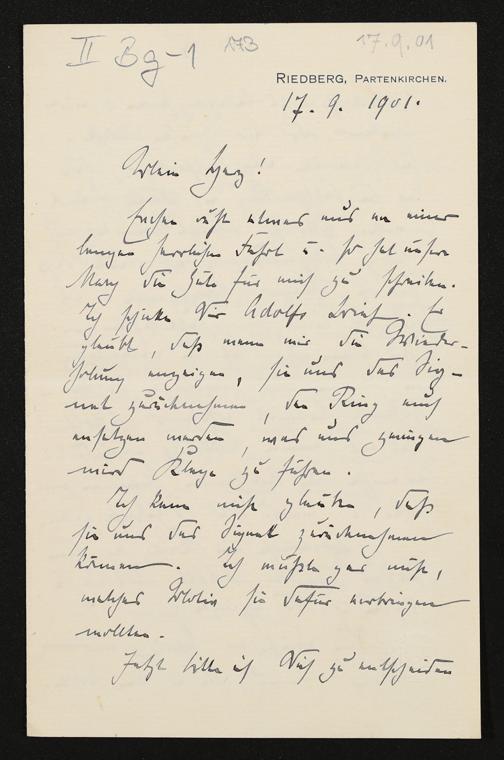 II Bg-1 173 17.9.01
RIEDBERG, PARTENKIRCHEN.
17. 9. 1901.
Mein Herz!
Evchen ruht etwas aus von einer
langen herrlichen Fahrt u. so hat unsere
Mary die Güte für mich zu schreiben.
Ich schicke Dir Adolfs Brief. Er
glaubt, daß wenn wir die Wieder-
holung anzeigen, sie uns das Sig-
net zurücknehmen, den Ring auch
ansetzen werden, was uns zwingen
wird Klage zu führen.
Ich kann nicht glauben, daß
sie uns das Signet zurücknehmen
können. Ich wüßte gar nicht,
welches Motiv sie dafür vorbringen
wollten.
Jetzt bitte ich Dich zu entscheiden